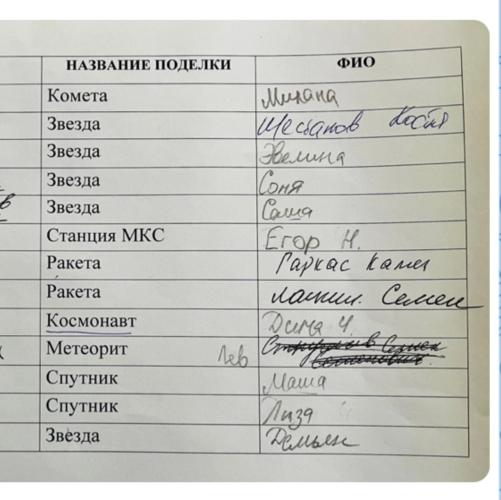 НАЗВАНИЕ ПОДЕЛКИ ФИО
Комета Милана
Звезда Шестапов Костя
Звезда Эвелина
Звезда Соня
Звезда Саша
Станция МКС Егор Н.
Ракета Гаркас
Ракета Семен
Космонавт Дима Ч.
Метеорит Лев
Спутник Маша
Спутник Лиза
Звезда Демьян